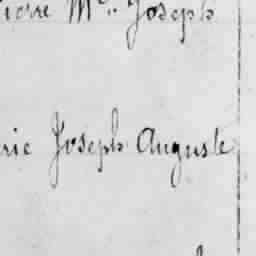 Pierre Me.. Joseph
rie Joseph Auguste